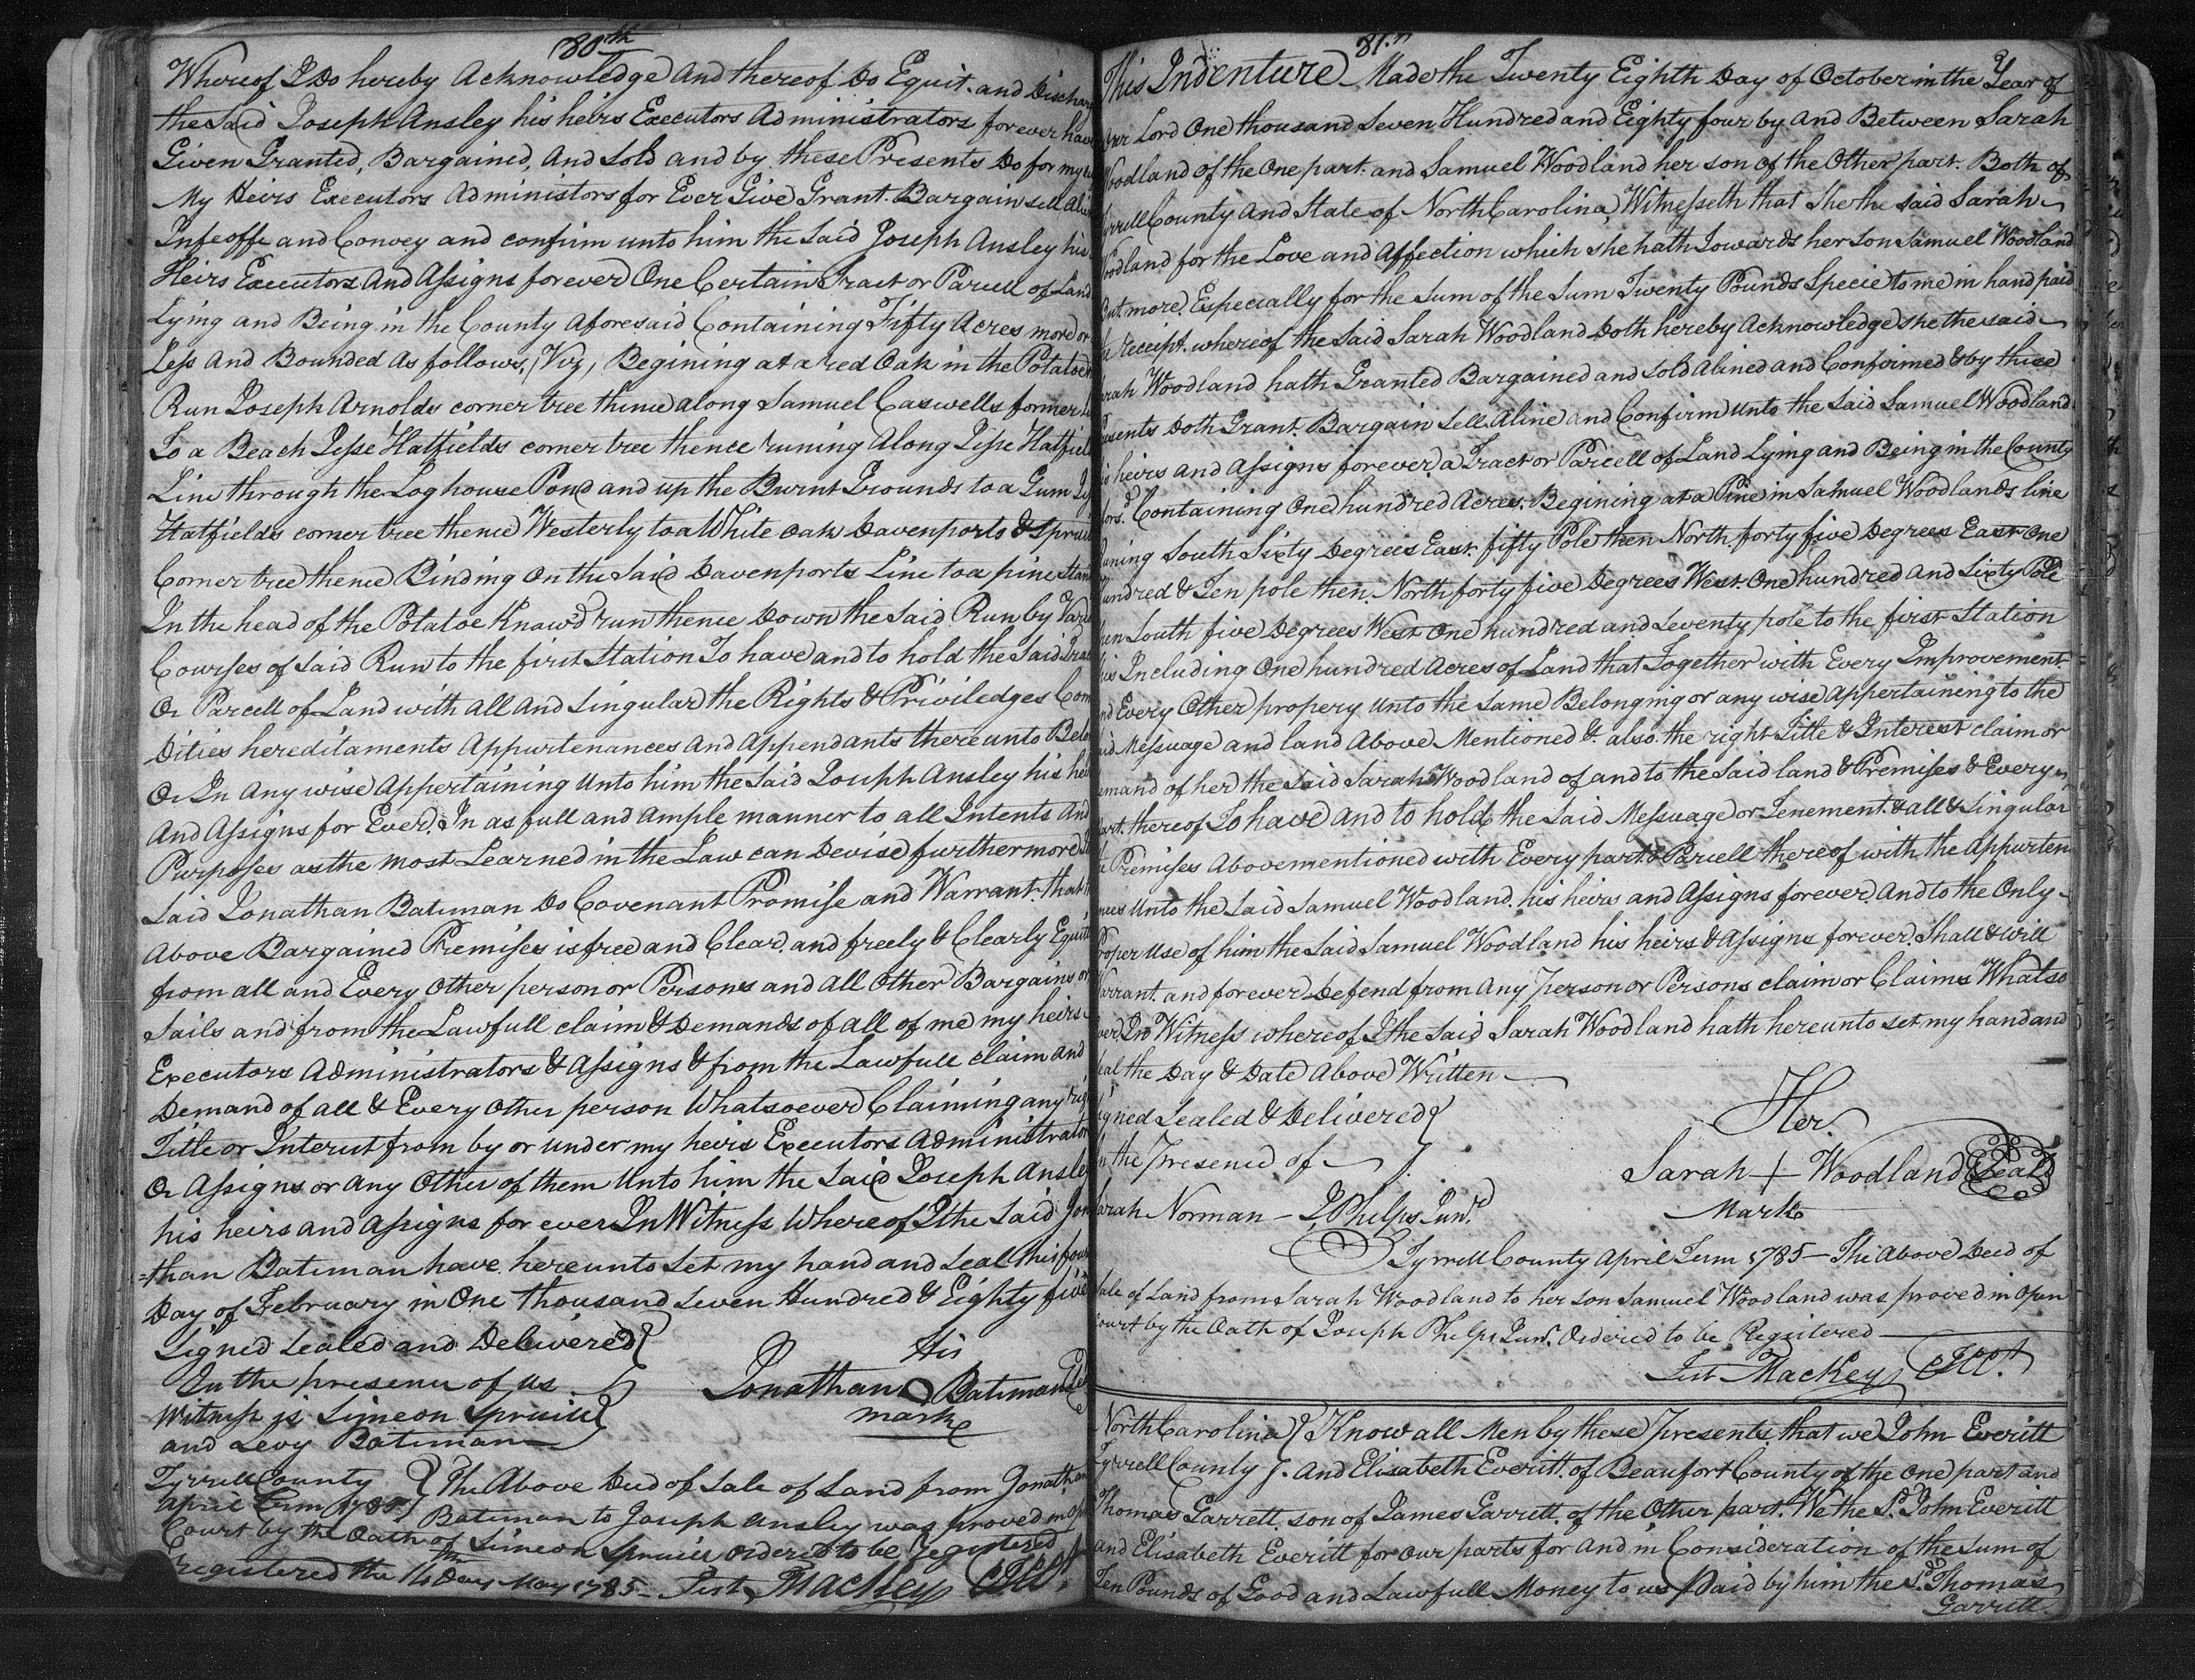 80th
Whereof I Do hereby Acknowledge And thereof Do Equit. and Dischar
the Said Joseph Ansley his heirs Executors Administrators forever have
Given Granted, Bargained, And Sold and by these Presents Do for my
My Heirs Executors Administors for Ever Give Grant. Bargain sell Ali
Infeoffe and Convey and confirm unto him the Said Joseph Ansley his
Heirs Executors And Assigns forever One Certain Tract or Parcell of Land
Lying and Being in the County aforesaid Containing Fifty Acres more or
Less And Bounded As follows, (Viz, Begining at a red Oak in the Potatoe
Run Joseph Arnolds corner tree thence along Samuel Caswells former
To a Beach Jesse Hatfields corner tree thence runing Along Jesse Hatfiel
Line through the Loghouse Pond and up the Burnt Grounds to a Gum Je
Hatfields corner tree thence Westerly to a White oak Davenports & Spruil
Corner tree thence Binding On the Said Davenports Line to a pine Stan
In the head of the Potatoe Knaw'd run thence Down the Said Run by Vari
Courses of Said Run to the first Station To have and to hold the Said Tra
Or Parcell of Land with all And Singular the Rights & Priviledges Com
Dities hereditaments Appurtenances And Appendants thereunto Belo
Or In Any wise Appertaining Unto him the Said Joseph Ansley his hei
And Assigns for Ever. In as full and Ample manner to all Intents And
Purposes as the most Learned in the Law can Devise furthermore I
Said Jonathan Batiman Do Covenant Promise and Warrant. that
Above Bargained Premises is free and Clear. and freely & Clearly Equit
from all and Every Other person or Persons and All Other Bargains or
Sails and from the Lawfull claim & Demands of all of me my heirs
Executors Administrators & Assigns & from the Lawfull claim and
Demand of all & Every Other person Whatsoever Claiming any rig
Title or Interest from by or under my heirs Executors Administrator
Or Assigns or any Other of them Unto him the Said Joseph Ansle
his heirs and Assigns for ever In Witness Whereof I the Said Jon
=than Batiman have hereunto Set my hand and Seal this four
Day of February in One thousand Seven Hundred & Eighty five
Signed Sealed and Delivered
In the presence of us
Witness is Simeon Spruill
and Levy Batiman
His
Jonathan O Batiman
mark
Tyrrell County
April Term 1785
The Above Deed of Sale of Land from Jonathan
Batiman to Joseph Ansley was proved in Op
Court by the Oath of Simeon Spruill Ordered to be Registered
Registered the 14th Day May 1785 - Test Mackey CTCCt.
81.st
This Indenture Made the Twenty Eighth Day of October in the Year of
Our Lord One thousand Seven Hundred and Eighty four by And Between Sarah
Woodland of the One part. and Samuel Woodland her son of the Other part. Both of
Tyrrell County And State of North Carolina, Witnesseth that She the said Sarah
Woodland for the Love and Affection which she hath Towards her Son Samuel Woodland
But more Especially for the Sum of the Sum Twenty Pounds Specie to me in hand paid
the receipt. whereof the Said Sarah Woodland Doth hereby Acknowledge she the said
Sarah Woodland hath Granted Bargained and Sold Alined and Confirmed & by these
Presents Doth Grant. Bargain Sell Aline and Confirm Unto the Said Samuel Woodland
his heirs and Assigns forever a Tract or Parcell of Land Lying and Being in the County
fors.d Containing One hundred Acres. Begining at a Pine in Samuel Woodlands line
Runing South Sixty Degrees East. fifty Pole then North. forty five Degrees East One
hundred & Ten pole then. North forty five Degrees West. One hundred and Sixty Pole
then South five Degrees West One hundred and Seventy pole to the first Station
this Including One hundred Acres of Land that Together with Every Improvement
and Every Other propery Unto the Same Belonging or any wise Appertaining to the
said Messuage and land Above Mentioned & also the right Title & Interest claim or
Demand of her the Said Sarah Woodland of and to the Said land & Premises & Every
part. thereof To have And to hold the Said Messuage or Tenement. & all & Singular
the Premises Abovementioned with Every part & Parcell thereof with the Appurten
ances Unto the Said Samuel Woodland. his heirs and Assigns forever And to the Only
Proper Use of him the Said Samuel Woodland his heirs & Assigns forever. Shall & will
Warrant. and forever Defend from Any Person or Persons claim or Claims Whatso
ever In Witness whereof I the Said Sarah Woodland hath hereunto set my hand and
Seal the Day & Date Above Written
Signed Sealed & Delivered
In the Presence of
Sarah Norman - J Phelps Jun.r
Her
Sarah + Woodland Seal
Mark
Tyrrell County April Term 1785 - The Above Deed of
Sale of Land from Sarah Woodland to her Son Samuel Woodland was proved in Open
Court by the Oath of Joseph Phelps Jun.r Ordered to be Registered
Test Mackey CTCCt.
North Carolina Know all Men by these Presents that we John Everitt
Tyrrell County And Elisabeth Everitt. of Beaufort County of the One part and
Thomas Garrett. son of James Garrett. of the Other part. We the S.d John Everitt
and Elisabeth Everitt for our parts for And in Consideration of the Sum of
Ten Pounds of Good and Lawfull Money to us Paid by him the S.d Thomas
Garrett